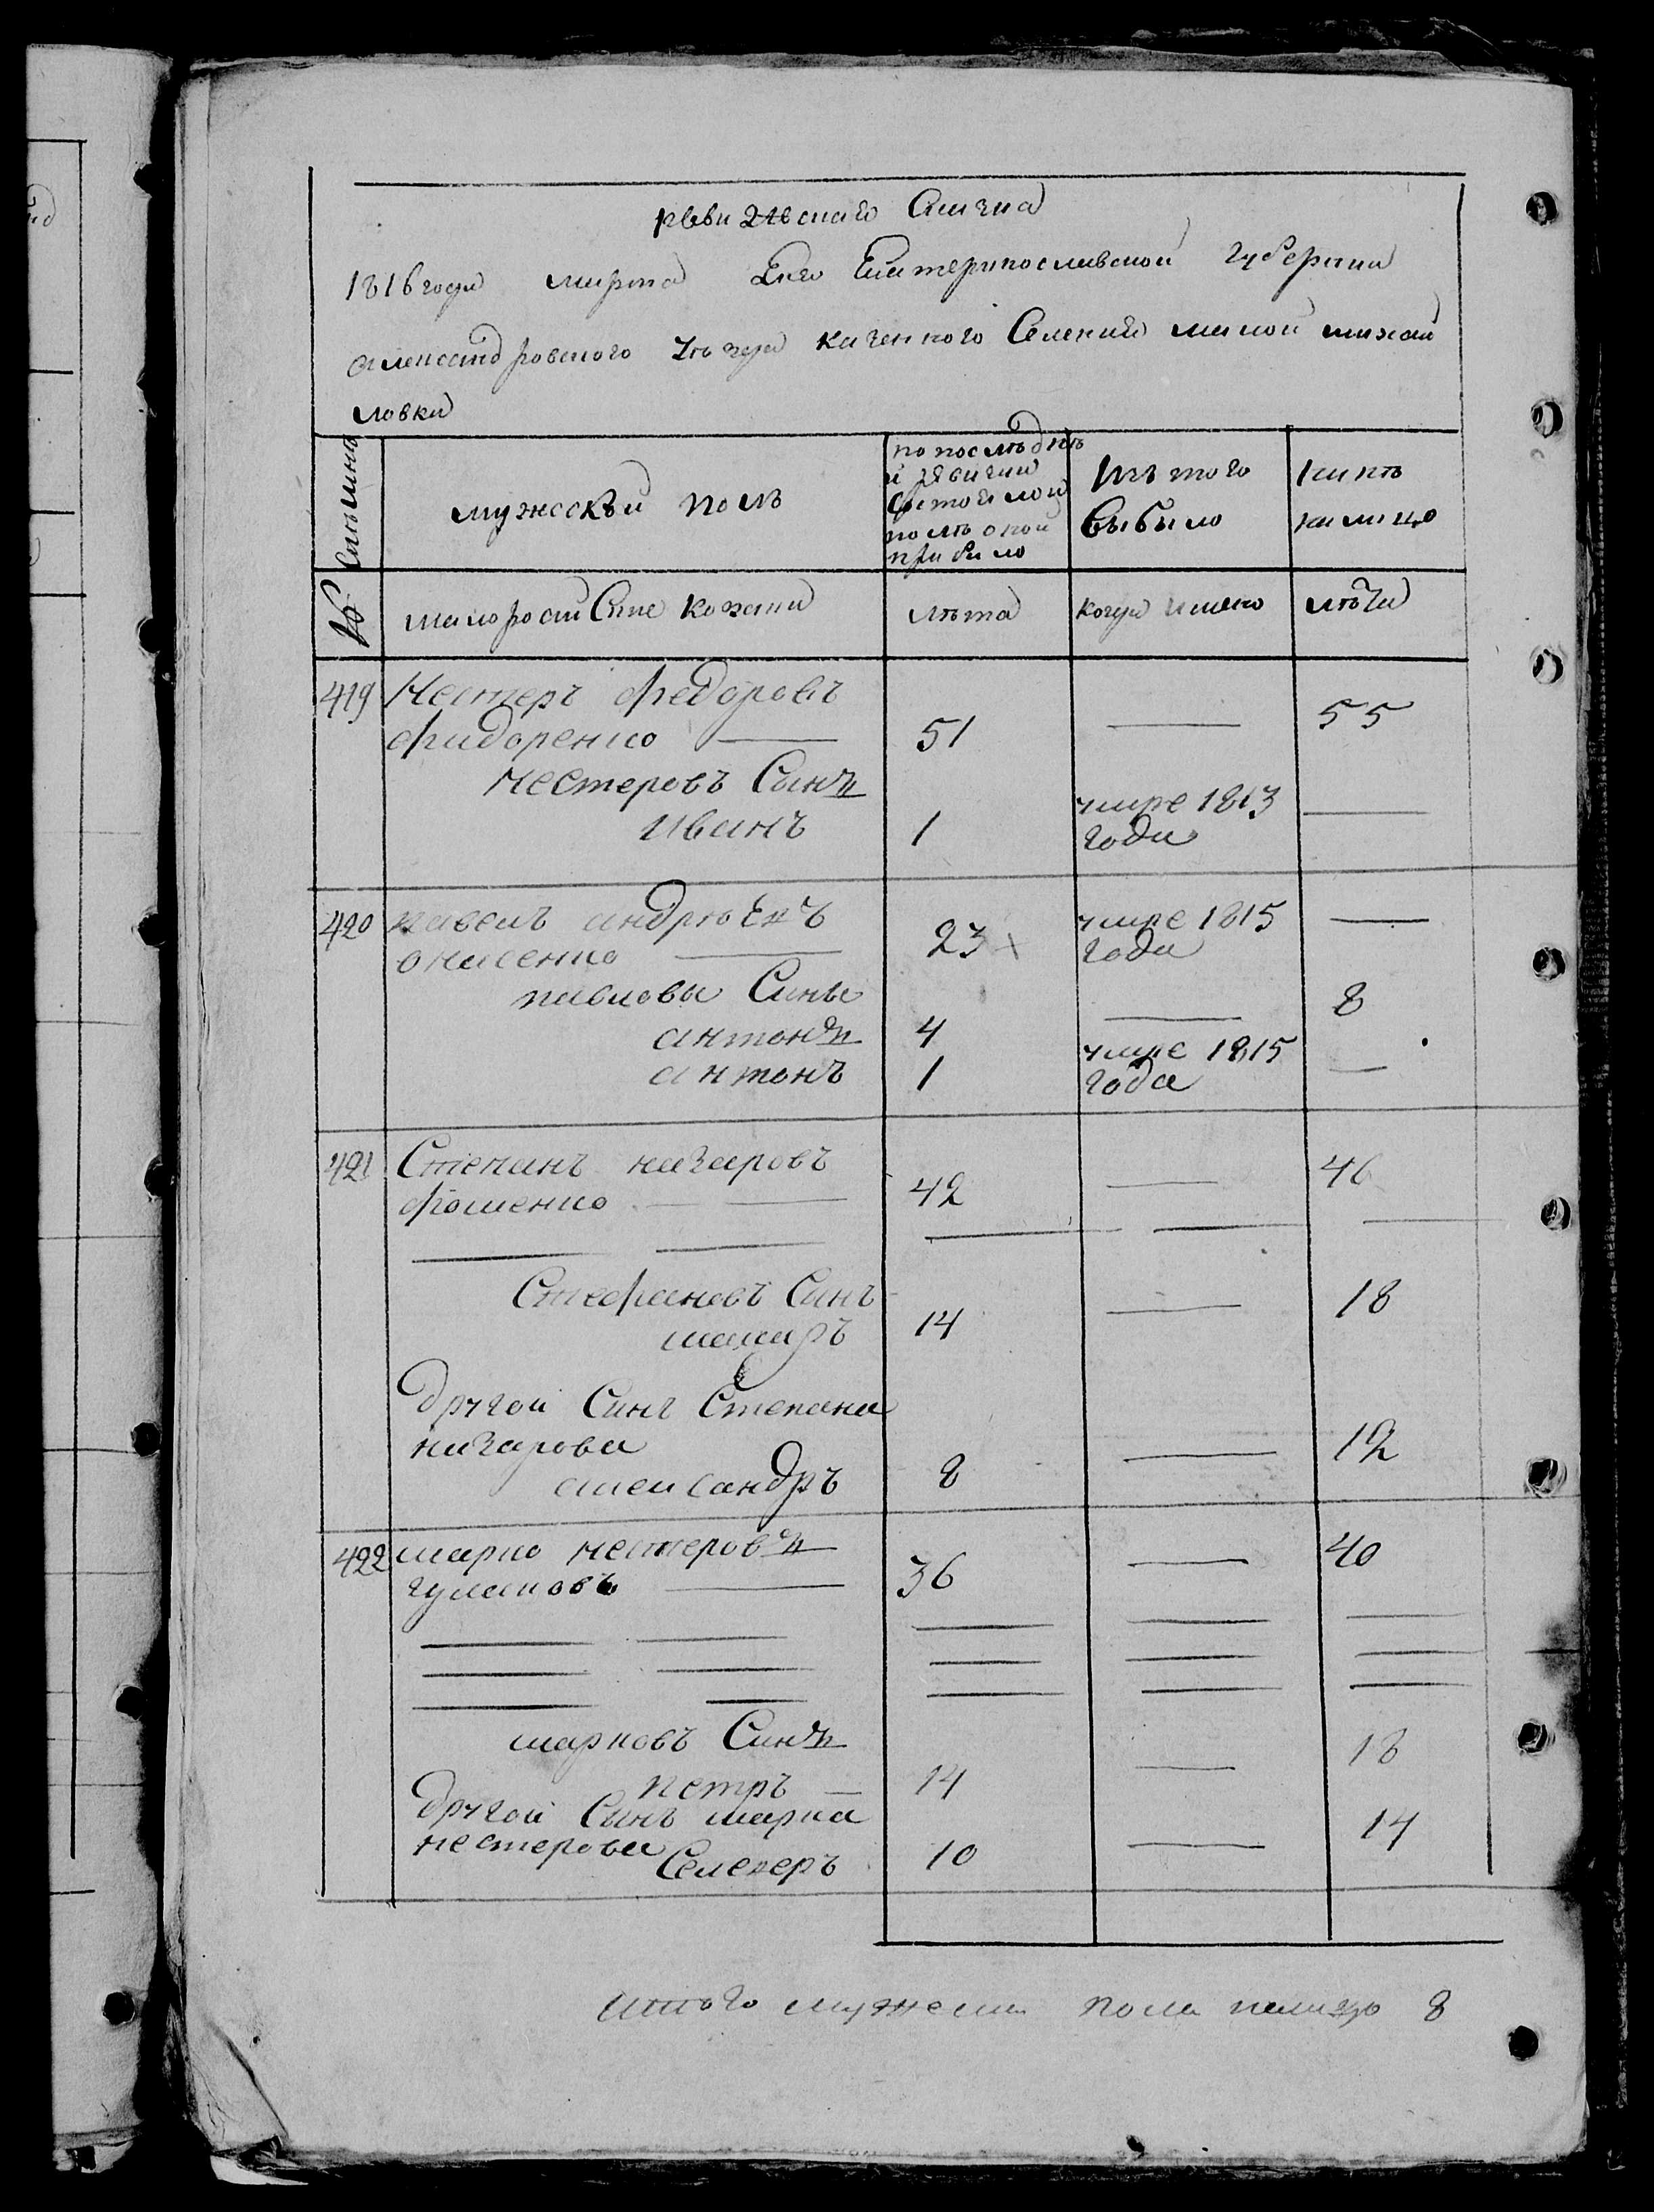 ревизская Сказка
1816 года марта Дня Екатеринославской губернии
александровского уезда казенного Селения малой михай
ловки
Семьинъ
мужескъй полъ
по последне
й ревизии
Состояло и
после оной
прибыло
Изъ того
Выбыло
нынъ
налицо
№
малоросийские козаки
лъта
когда имено
лъта
419 Нестеръ Федоровъ
Фидоренко — 51 — 55
нестеровъ Сынъ
иванъ 1 умре 1813 года —
420 павелъ андрюевъ
онисенко — 23 умре 1815 года —
павловы Сины
антонъ 4 — 8
антонъ 1 умре 1815 года —
421 Степанъ назаровъ
Фоменко — 42 — 46
Стефановъ Синъ
макаръ 14 — 18
другой Синъ Степана
назарова
александръ 8 — 12
422 марко нестеровъ
гумановъ — 36 — 40
марковъ Синъ
петръ — 14 — 18
другой Сынъ марка
нестерова
Селеверъ 10 — 14
итого мужеска пола налицо 8